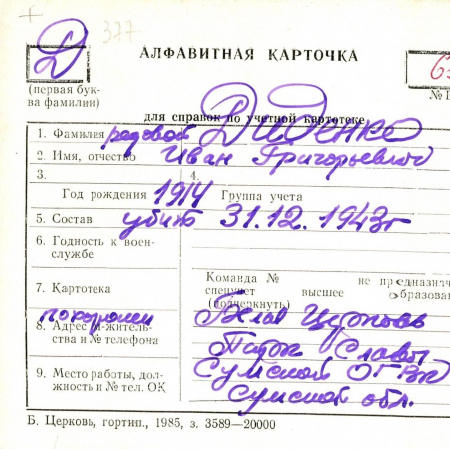 377
Д
АЛФАВИТНАЯ КАРТОЧКА
(первая бук-
ва фамилии)
для справок по учетной картотеке
1. Фамилия рядовой Диденко
2. Имя, отчество Иван Григорьевич
3. 4.
Год рождения 1914 Группа учета
5. Состав убит 31.12.1943г
6. Годность к воен-
службе
Команда № не предназначит
7. Картотека спецучет высшее образова
(подчеркнуть)
похоронен
8. Адрес м-житель-
ства и № телефона
Парк Славы
9. Место работы, дол-
жность и № тел. ОК
Сумской
Сумской обл.
Б. Церковь, гортип., 1985, з. 3589—20000